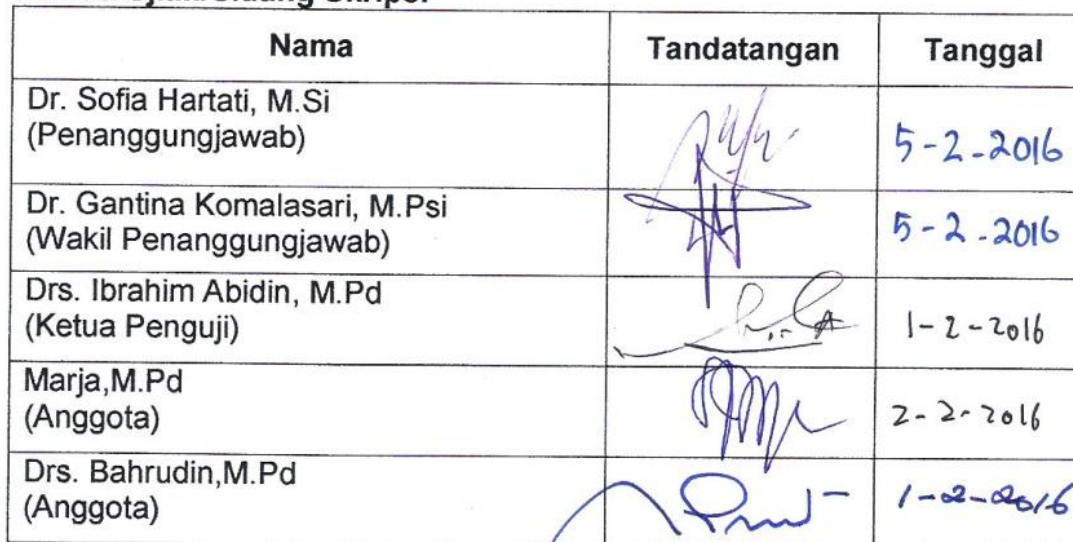 Nama Tandatangan Tanggal
Dr. Sofia Hartati, M.Si
(Penanggungjawab) 5-2-2016
Dr. Gantina Komalasari, M.Psi
(Wakil Penanggungjawab) 5-2-2016
Drs. Ibrahim Abidin, M.Pd
(Ketua Penguji) 1-2-2016
Marja,M.Pd
(Anggota) 2-2-2016
Drs. Bahrudin,M.Pd
(Anggota) 1-2-2016